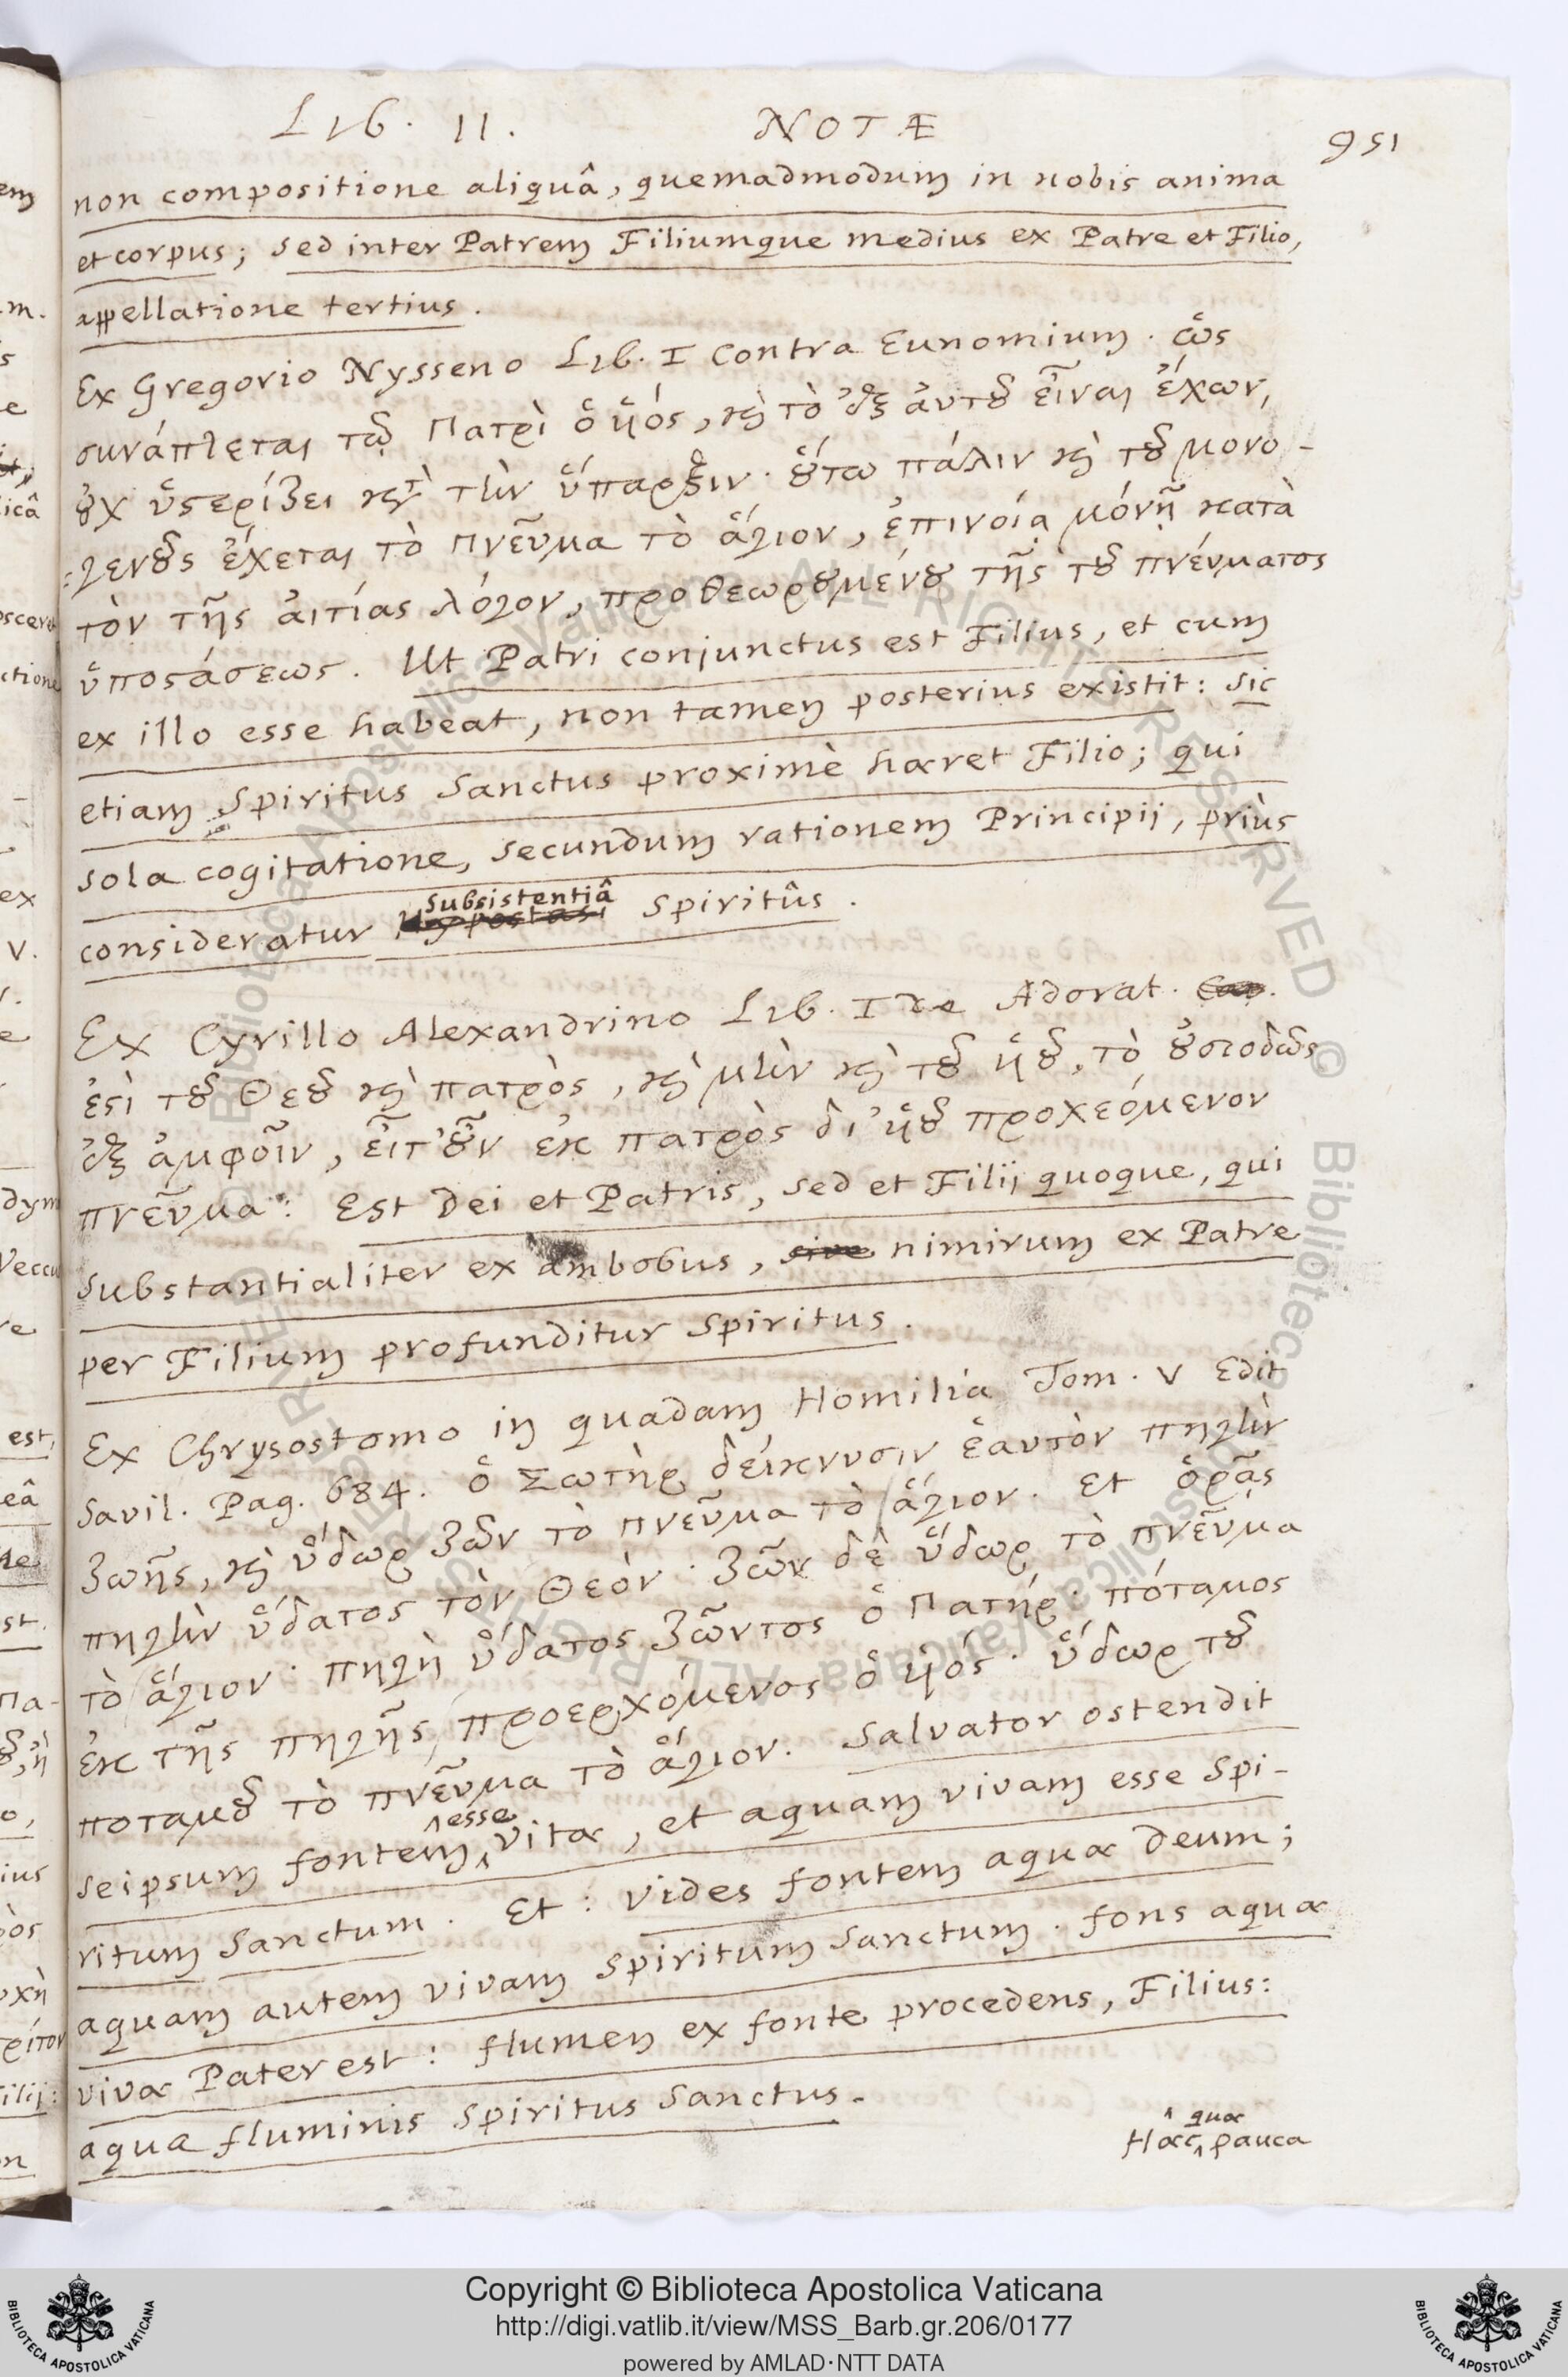 Lib. II. NOTÆ 951
non compositione aliquâ, quemadmodum in nobis anima
et corpus; sed inter Patrem Filiumque medius ex Patre et Filio,
appellatione tertius.
Ex Gregorio Nysseno Lib. I contra Eunomium. ὡς
συνάπτεται τῷ Πατρὶ ὁ ὑιός, καὶ τὸ ἐξ ἀυτοῦ εἶναι ἔχων,
οὐχ ὑστερίζει κατὰ τὴν ὕπαρξιν· οὕτω πάλιν καὶ τοῦ μονο-
=γενοῦς ἔχεται τὸ πνεῦμα τὸ ἅγιον, ἐπινοίᾳ μόνῃ κατὰ
τὸν τῆς ἀιτίας λόγον, προθεωρουμένου τῆς τοῦ πνέυματος
ὑποστάσεως. Ut Patri conjunctus est Filius, et cum
ex illo esse habeat, non tamen posterius existit: sic
etiam Spiritus Sanctus proximè hæret Filio; qui
sola cogitatione, secundum rationem Principij, priùs
consideratur Subsistentiâ Spiritûs.
Ex Cyrillo Alexandrino Lib. I de Adorat.
ἐστὶ τοῦ Θεοῦ καὶ πατρὸς, καὶ μὴν καὶ τοῦ ὑιοῦ, τὸ οὐσιοδῶς
ἐξ ἀμφοῖν, εἴτ' οὖν ἐκ πατρὸς δι' ὑιοῦ προχεόμενον
πνεῦμα: Est Dei et Patris, sed et Filij quoque, qui
substantialiter ex ambobus, nimirum ex Patre
per Filium profunditur Spiritus.
Ex Chrysostomo in quadam Homilia Tom. V Edit
Savil. Pag. 684. ὁ Σωτὴρ δείκνυσιν ἑαυτὸν πηγὴν
ζωῆς, καὶ ὕδωρ ζῶν τὸ πνεῦμα τὸ ἅγιον. et ὁρᾷς
πηγὴν ὕδατος τὸν Θεὸν· ζῶν δὲ ὕδωρ τὸ πνεῦμα
τὸ ἅγιον· πηγὴ ὕδατος ζῶντος ὁ Πατήρ· πόταμος
ἐκ τῆς πηγῆς προερχόμενος ὁ ὑιός· ὕδωρ τοῦ
ποταμοῦ τὸ πνεῦμα τὸ ἅγιον. Salvator ostendit
seipsum fontem esse vitæ, et aquam vivam esse Spi-
ritum Sanctum. Et: vides fontem aquæ Deum;
aquam autem vivam Spiritum Sanctum. fons aquæ
vivæ Pater est: flumen ex fonte procedens, Filius:
aqua fluminis Spiritus Sanctus.
Hæc quæ pauca
Copyright © Biblioteca Apostolica Vaticana
http://digi.vatlib.it/view/MSS_Barb.gr.206/0177
powered by AMLAD·NTT DATA